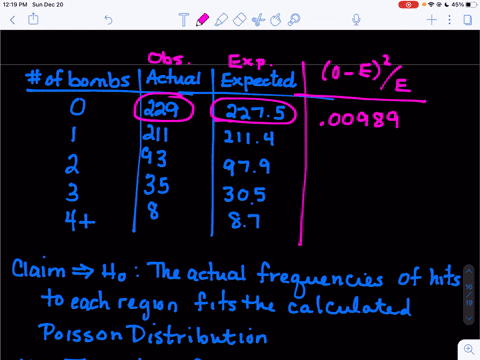 12:19 PM Sun Dec 20
45%
Obs. Exp.
# of bombs Actual Expected (O-E)²/E
0 229 227.5 .00989
1 211 211.4
2 93 97.9
3 35 30.5
4+ 8 8.7
Claim ⇒ H₀: The actual frequencies of hits
to each region fits the calculated
Poisson Distribution